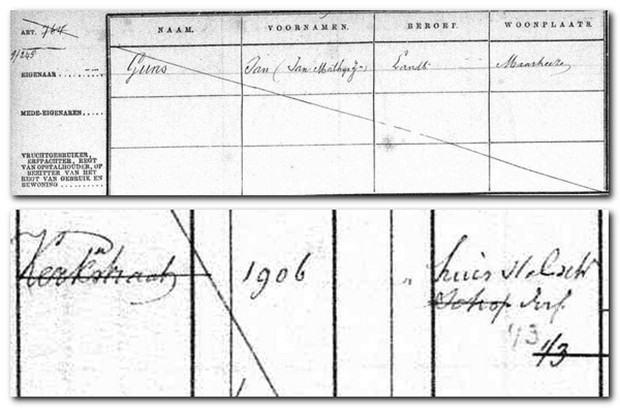 ART. 764
NAAM. VOORNAMEN. BEROEP. WOONPLAATS.
1/245
EIGENAAR Guns Jan (Jan Mathysz) Landb Maarheeze
MEDE-EIGENAREN.....
VRUCHTGEBRUIKER,
ERFPACHTER, REGT
VAN OPSTALHOUDER, OF
BEZITTER VAN HET
REGT VAN GEBRUIK EN
BEWONING..........
Kerkstraat 1906 " huis
Schop erf
1/3
1/3